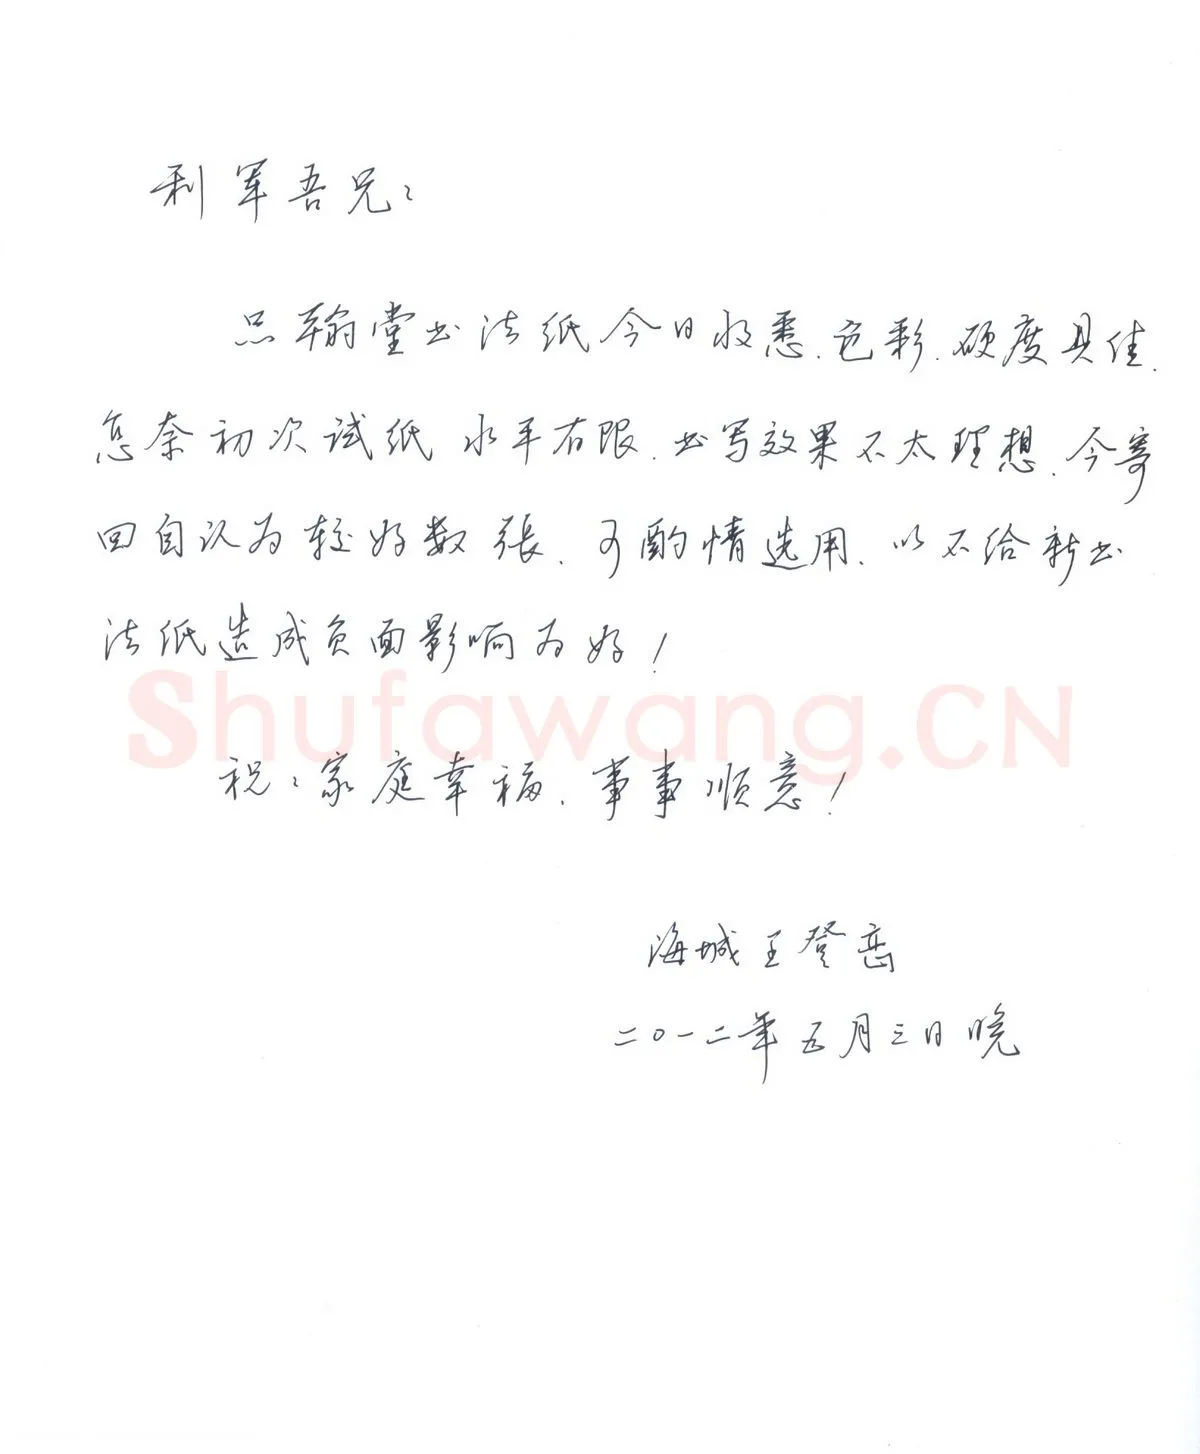 利军吾兄：
品翰堂书法纸今日收悉、色彩、硬度具佳、
怎奈初次试纸 水平有限、书写效果不太理想、今寄
回自认为较好数張、可酌情选用、以不给新书
法纸造成负面影响为好！
Shufawang.CN
祝：家庭幸福、事事顺意！
海城王登峦
二〇一二年五月三日晚